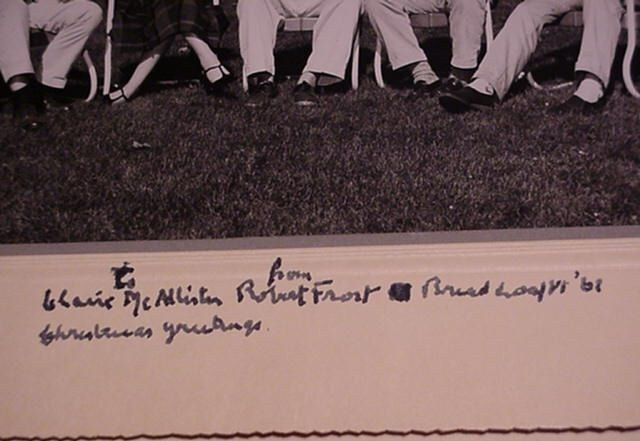 to from
Claire McAllister Robert Frost Bread Loaf Vt '61
Christmas greetings.